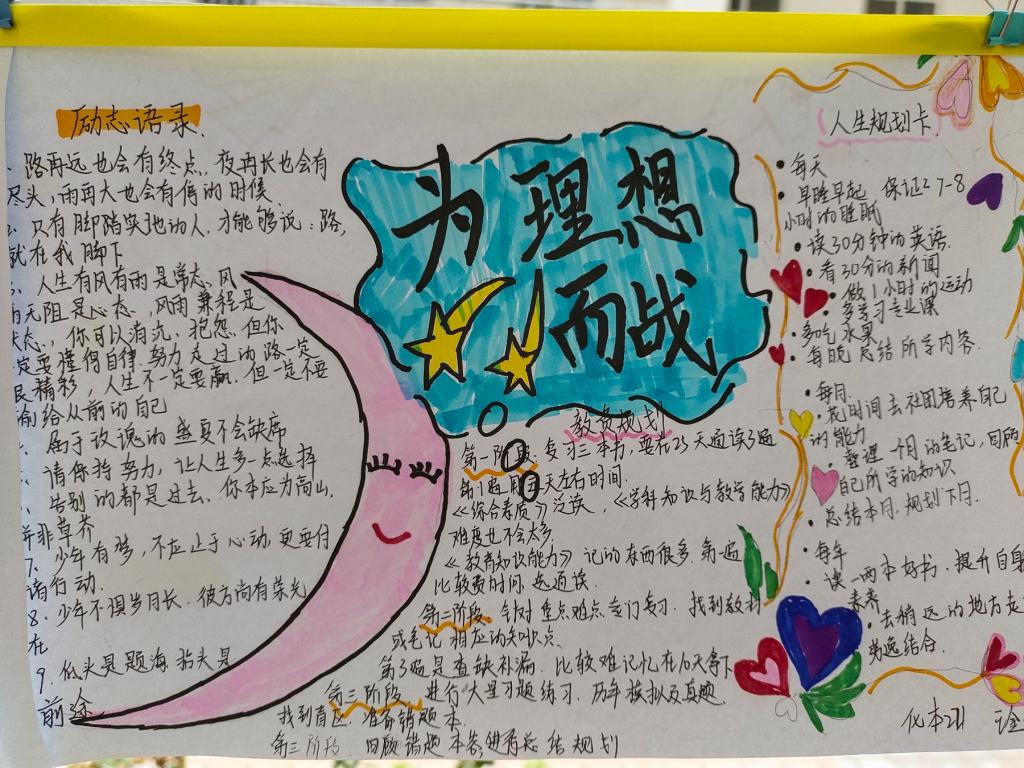 励志语录.
路再远也会有终点, 夜再长也会有
尽头, 雨再大也会有停的时候
只有脚踏实地的人, 才能够说: 路,
就在我脚下
人生有风有雨是常态, 风
雨无阻是心态, 风雨兼程是
状态, 你可以消沉, 抱怨, 但你
一定要懂得自律, 努力走过的路一定
很精彩, 人生不一定要赢, 但一定不要
输给从前的自己
属于玫瑰的盛夏不会缺席
请保持努力, 让人生多一点选择
告别的都是过去, 你本应为高山,
并非草芥
7. 少年有梦, 不应止于心动, 更要付
诸行动.
8. 少年不惧岁月长, 彼方尚有荣光
在
9. 低头是题海, 抬头是
前途
为理想
而战
教资规划
第一阶段: 复习三本书, 要在25天通读3遍
第1遍 天左右时间.
《综合素质》泛读, 《学科知识与教学能力》
难度也不会太多.
《教育知识能力》记的东西很多, 第一遍
比较费时间, 选通读.
第二阶段, 针对重点难点专门复习, 找到教材
或笔记相应的知识点.
第3遍是查缺补漏, 比较难记忆在10天拿下
第三阶段, 进行大量习题练习, 历年模拟及真题
找到盲区, 准备错题本.
第三阶段: 回顾错题本, 进行总结规划
人生规划卡
• 每天
• 早睡早起, 保证 7-8
小时的睡眠
• 读30分钟的英语.
• 看30分的新闻
• 做1小时的运动
• 多复习专业课
多吃水果
• 每晚总结所学内容.
• 每月.
• 花时间去社团培养自己
的能力.
• 整理一个月的笔记, 回顾
自己所学的知识
• 总结本月, 规划下月.
• 每年
• 读一两本好书, 提升自身
素养
• 去稍远的地方走
劳逸结合.
化本211